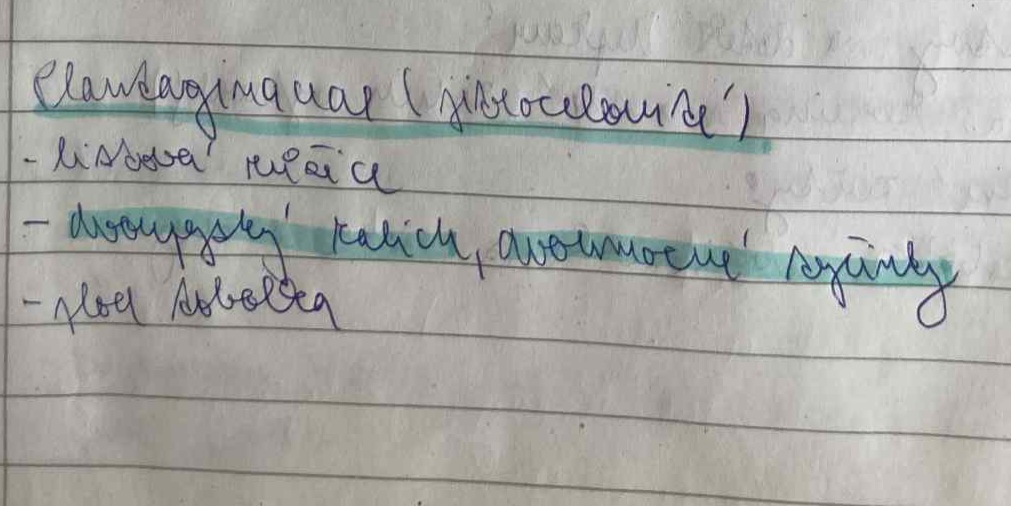 Plantaginaceae (jitrocelovité)
- listová růžice
- dvoupyský kalich, dvoumocné tyčinky
- plod tobolka